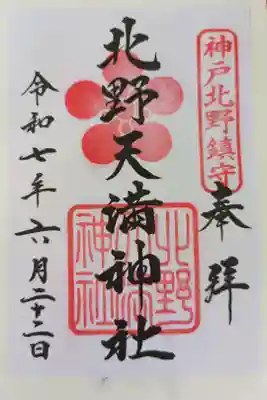 神戸北野鎮守
奉拝
北野天満神社
北野天満神社
令和七年六月二十二日